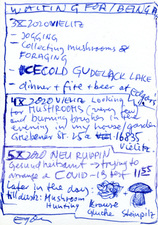 WAITING FOR/BEING A
3 X 2020 VIELITZ
- JOGGING
- Collecting mushrooms &
FORAGING
- ICECOLD GUDELACK LAKE
- dinner + fire + beer at
4 X 2020 VIELITZ Looking
for MUSHROOMS
and burning boughs in the
evening in my house/garden
Vielitz
5 X 2020 NEURUPPIN
trying to
arrange a COVID-19 1155
Later in the day:
Mushroom
Hunting
Krause
Glucke Steinpilz